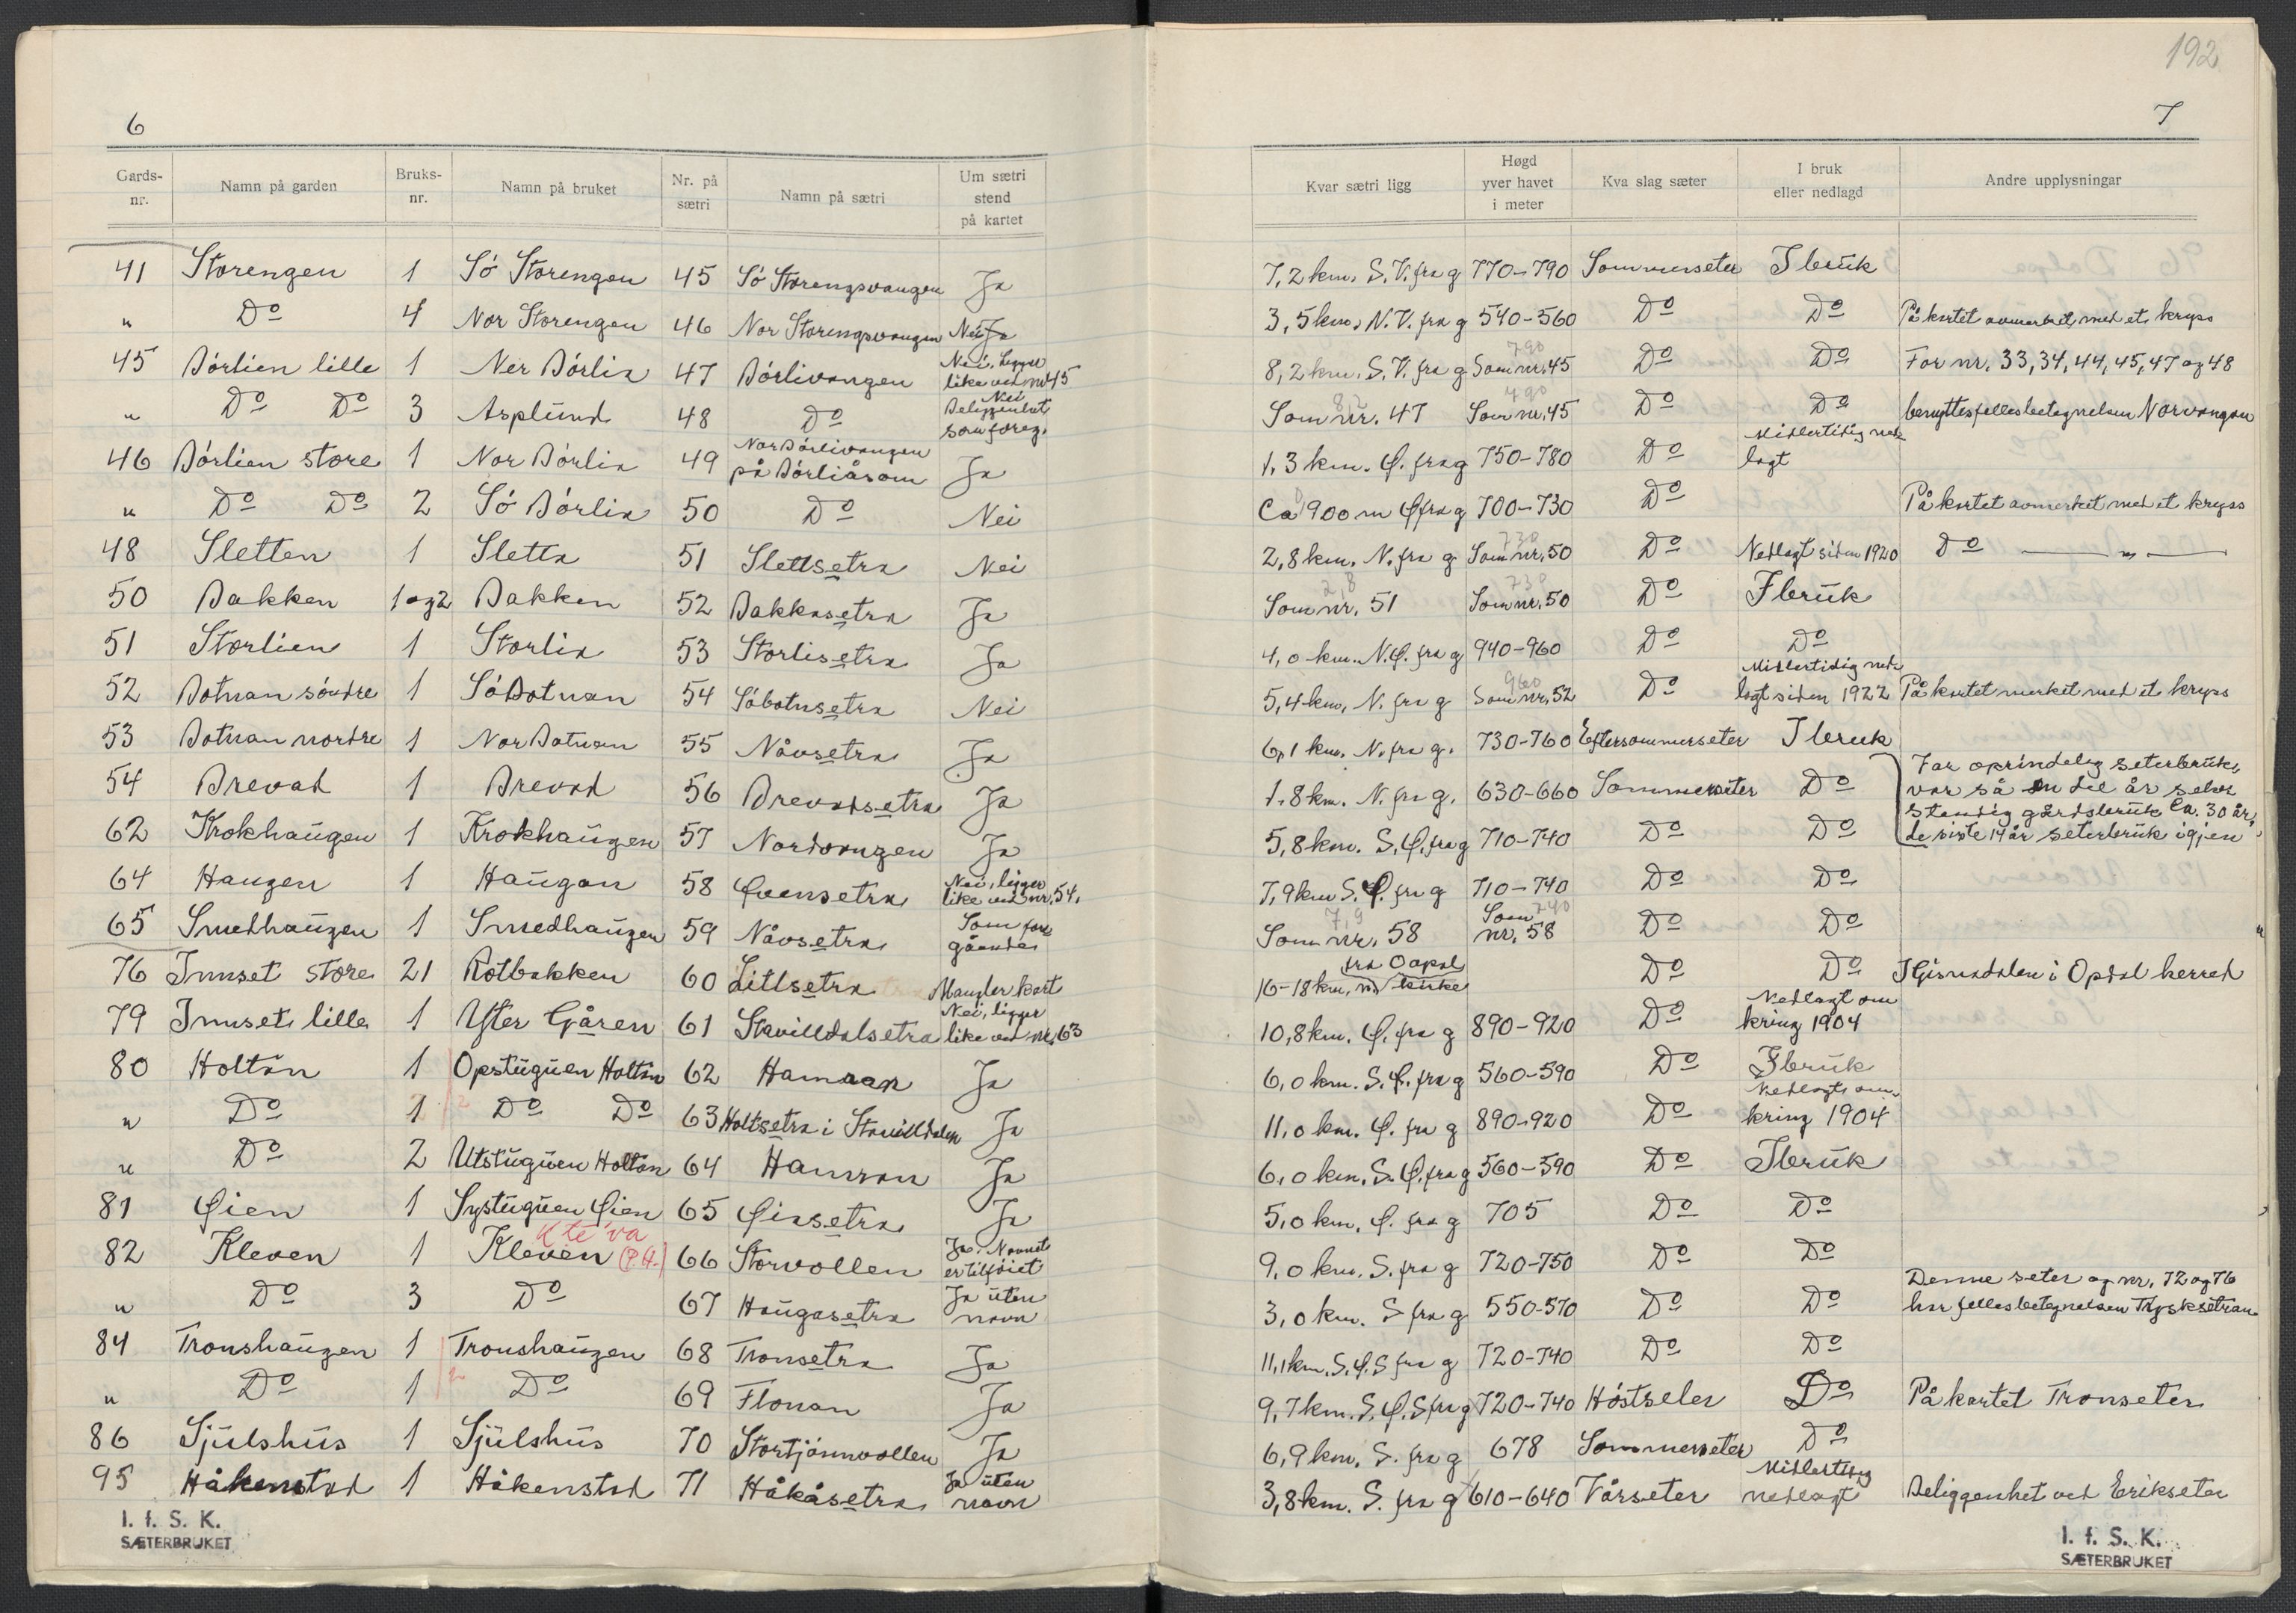 192
6
7
Gards-nr. Namn på garden Bruks-nr. Namn på bruket Nr. på sætri Namn på sætri Um sætri stend på kartet
Kvar sætri ligg Høgd yver havet i meter Kva slag sæter I bruk eller nedlagd Andre upplysningar
41 Storengen 1 Só Storengen 45 Só Storengsvangen Ja 7,2 km. S.V. fra g 770-790 Sommerseter I bruk
" Do 4 Nor Storengen 46 Nor Storengsvangen Nei Ja 3,5 km. N.V. fra g 540-560 Do Do På kartet avmerket med et kryss
45 Börlien lille 1 Ner Börlia 47 Börlivangen Nei, ligger like ved nr 45 8,2 km. S.V. fra g Som nr. 45 790 Do Do For nr. 33, 34, 44, 45, 47 og 48
" Do Do 3 Asplund 48 Do Nei Beliggenhet som foreg. Som nr. 47 8,2 Som nr. 45 790 Do Do benyttes fellesbetegnelsen Norvangan
46 Börlien store 1 Nor Börlia 49 Nor Börlivangen på Börliåsom Ja 1,3 km. Ø. fra g 750-780 Do Midlertidig nedlagt
" Do Do 2 Só Börlia 50 Do Nei Ca 900 m Ø fra g 700-730 Do På kartet avmerket med et kryss
48 Sletten 1 Sletta 51 Slettsetra Nei 2,8 km. N. fra g Som nr. 50 730 Do Nedlagt siden 1920 Do — " —
50 Bakken 1 og 2 Bakken 52 Bakkasetra Ja Som nr. 51 2,8 Som nr. 50 730 Do I bruk
51 Storlien 1 Storlia 53 Storlisetra Ja 4,0 km. N.Ø. fra g 940-960 Do Do
52 Botnan söndre 1 Só Botnan 54 Sóbotnsetra Nei 5,4 km. N. fra g Som nr. 52 960 Do Midlertidig nedlagt siden 1922 På kartet merket med et kryss
53 Botnan nordre 1 Nor Botnan 55 Nåvsetra Ja 6,1 km. N. fra g. 730-760 Eftersommerseter I bruk
54 Brevad 1 Brevad 56 Brevadsetra Ja 1,8 km. N. fra g. 630-660 Sommerseter Do Var oprindelig seterbruk, var så en del år selvstendig gårdsbruk Ca. 30 år,
62 Krokhaugen 1 Krokhaugen 57 Nordvangen Ja 5,8 km. S.Ø. fra g 710-740 Do Do de siste 14 år seterbruk igjen
64 Haugen 1 Haugan 58 Øvensetra Nei, ligger like ved nr. 54. 7,9 km S.Ø. fra g 710-740 Do Do
65 Smedhaugen 1 Smedhaugen 59 Nåvsetra Som foregående Som nr. 58 7,9 Som nr. 58 740 Do Do
76 Innset store 21 Rotbakken 60 Litlsetra Mangler kart 16-18 km, fra Opdal kirke Do Do I Gisnadalen i Opdal herred
79 Innset lille 1 Yster Gåren 61 Stavilldalsetra Nei, ligger like ved nr. 63 10,8 km. Ø. fra g 890-920 Do Nedlagt omkring 1904
80 Holtån 1 Opstuguen Holtån 62 Hamran Ja 6,0 km. S.Ø. fra g 560-590 Do I bruk
" Do 1 2 Do Do 63 Holtsetra i Stavilldalen Ja 11,0 km. Ø. fra g 890-920 Do Nedlagt omkring 1904
" Do 2 Utstuguen Holtån 64 Hamran Ja 6,0 km. S.Ø. fra g 560-590 Do I bruk
81 Øien 1 Systuguen Øien 65 Øiasetra Ja 5,0 km. Ø. fra g 705 Do Do
82 Kleven 1 Kleven (P.H.) 66 Storvollen Ja. Navnet er tilföiet 9,0 km. S. fra g 720-750 Do Do
" Do 3 Do 67 Haugasetra Ja uten navn 3,0 km. S fra g 550-570 Do Do Denne seter og nr. 72 og 76 har fellesbetegnelsen Tysksetran
84 Tronshaugen 1 Tronshaugen 68 Tronsetra Ja 11,1 km. S.Ø.S fra g 720-740 Do Do
" Do 1 2 Do 69 Flonan Ja 9,7 km. S.Ø.S fra g 720-740 Höstseter Do På kartet Tronseter
86 Sjulshus 1 Sjulshus 70 Stortjönnvollen Ja 6,9 km. S. fra g 678 Sommerseter Do
95 Håkenstad 1 Håkenstad 71 Håkåsetra Ja uten navn 3,8 km. S. fra g 610-640 Vårseter Midlertidig nedlagt Beliggenhet ved Erikseter
I. f. S. K.
SÆTERBRUKET
I. f. S. K.
SÆTERBRUKET